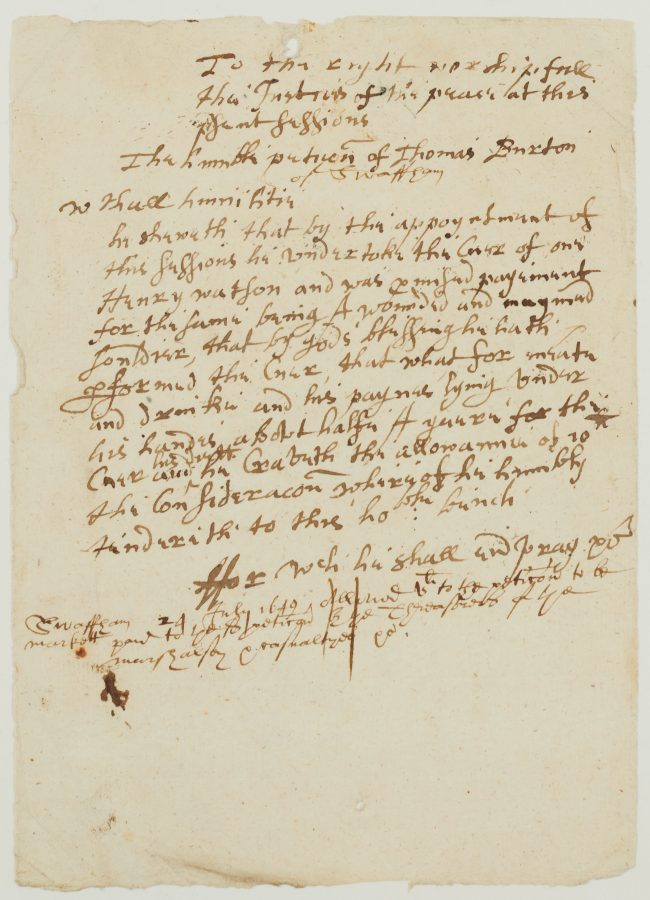 To the right worshipfull
the Justices of the peace at this
pesent Sessions
The humble peticon of Thomas Burton
of Swaffham
humilitie
he sheweth that by the appoyntment of
this Sessions he undertoke the Cuer of one
Henry Watson and was pmised payement
for the same being A wounded and maymed
souldier, that by gods blessing he hath
pformed the Cuer, that what for meate
and drinke and his paynes lying under
his handes about halfe A yeere for the
Cuer his dyett
and he Craveth the allowannce of 10
the Consideracon wherof he humbly
tendereth to this hoble bench
ffor wch he shall ever pray &c
Swaffham 24 July 1649 Allowed vli to the peticonr to be
markett paid to the peticonr by the Threasurers of the
marshalsey &c